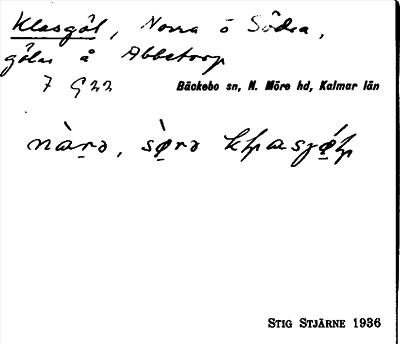 Klasgöl, Norra o Södra,
gölar å Abbetorp
7 G 22 Bäckebo sn, N. Möre hd, Kalmar län
STIG STJÄRNE 1936